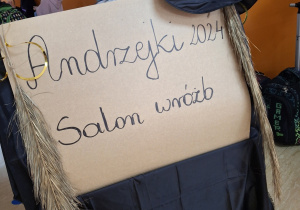 Andrzejki 2024
Salon wróżb